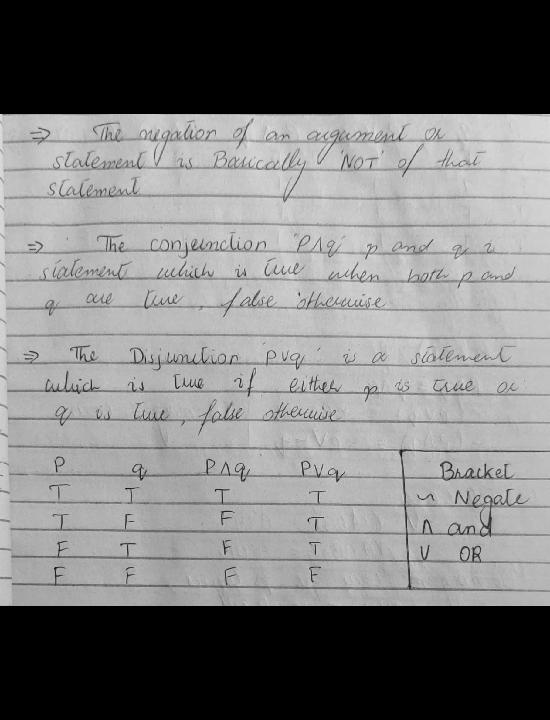 ⇒ The negation of an argument or
statement is Basically 'NOT' of that
statement
⇒ The conjunction 'P∧q' p and q is
statement which is true when both p and
q are true, false otherwise
⇒ The Disjunction 'p∨q' is a statement
which is true if either p is true or
q is true, false otherwise
P q P∧q P∨q
T T T T
T F F T
F T F T
F F F F
Bracket
~ Negate
∧ and
∨ OR